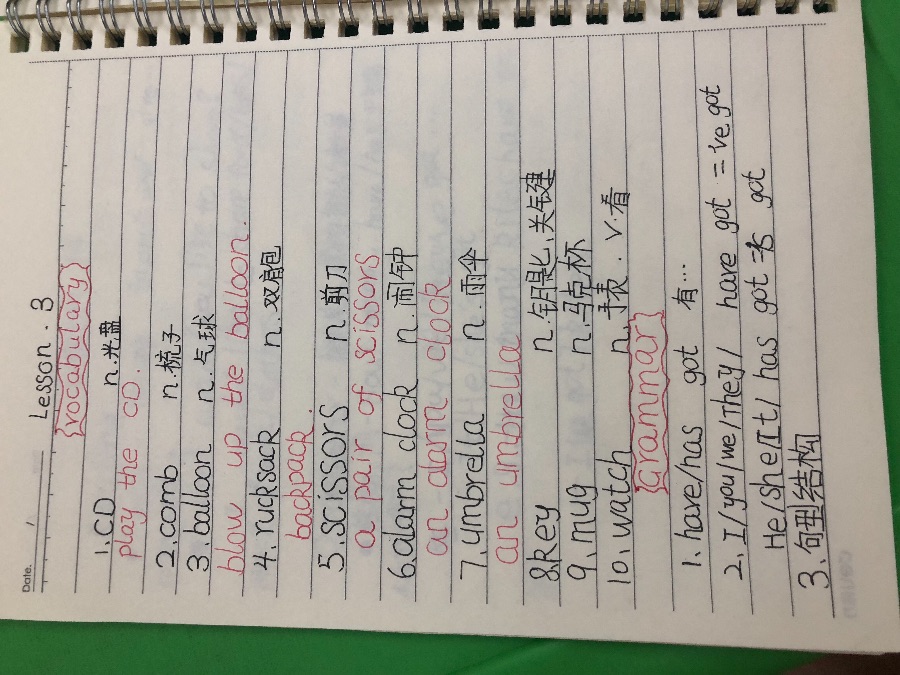 Date.
Lesson. 3
{vocabulary}
1. CD n.光盘
play the CD.
2. comb n.梳子
3. balloon n.气球
blow up the balloon.
4. rucksack n.双肩包
backpack.
5. scissors n.剪刀
a pair of scissors
6. alarm clock n.闹钟
an alarm clock
7. umbrella n.雨伞
an umbrella
8. key n.钥匙、关键
9. mug n.马克杯
10. watch n.手表. v.看
{Grammar}
1. have/has got 有...
2. I/you/we/They/ have got = 've got
He/she/It/ has got = 's got
3. 句型结构